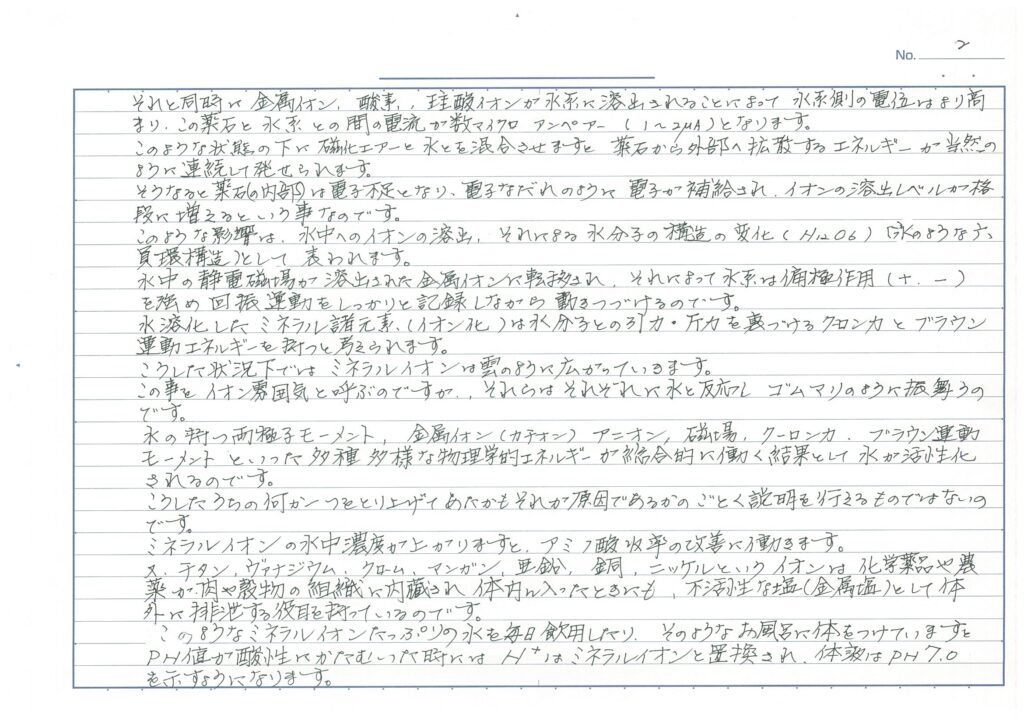 No. 2
それと同時に金属イオン、酸素、珪酸イオンが水系に溶出されることによって水系側の電位はより高
まり、この薬石と水系との間の電流が数マイクロアンペアー(1〜2μA)となります。
このような状態の下に磁化エアーと水とを混合させますと薬石から外部へ拡散するエネルギーが当然の
ように連続して発せられます。
そうなると薬石(内部)は電子不足となり、電子なだれのように電子が補給され、イオンの溶出レベルが格
段に増えるという事なのです。
このような影響は、水中へのイオンの溶出、それによる水分子の構造の変化(H12O6)(氷のような六
員環構造)として表われます。
水中の静電磁場が溶出された金属イオンに転移され、それによって水系は偏極作用(+、−)
を強め回振運動をしっかりと記録しながら動きつづけるのです。
水溶化したミネラル諸元素、(イオン化)は水分子との引力・斥力を裏づけるクロン力とブラウン
運動エネルギーを持つと考えられます。
こうした状況下ではミネラルイオンは雲のように広がっています。
この事をイオン雰囲気と呼ぶのですが、、それらはそれぞれに水と反応し ゴムマリのように振舞うの
です。
水の持つ両極子モーメント、金属イオン(カチオン)アニオン、磁場、クーロンカ、ブラウン運動
モーメントといった多種多様な物理学的エネルギーが総合的に働く結果として水が活性化
されるのです。
こうしたうちの何か一つをとり上げてあたかもそれが原因であるかのごとく説明を行えるものではないの
です。
ミネラルイオンの水中濃度が上がりますと、アミノ酸収率の改善に働きます。
又、チタン、ヴァナジウム、クローム、マンガン、亜鉛、銅、ニッケルというイオンは化学薬品や農
薬が肉や穀物の組織に内蔵され体内に入ったときにも、不活性な塩(金属塩)として体
外に排泄する役目を持っているのです。
このようなミネラルイオンたっぷりの水を毎日飲用したり、そのようなお風呂に体をつけていますと
PH値が酸性にかたむいった時にはH+はミネラルイオンと置換され、体液はPH7.0
を示すようになります。